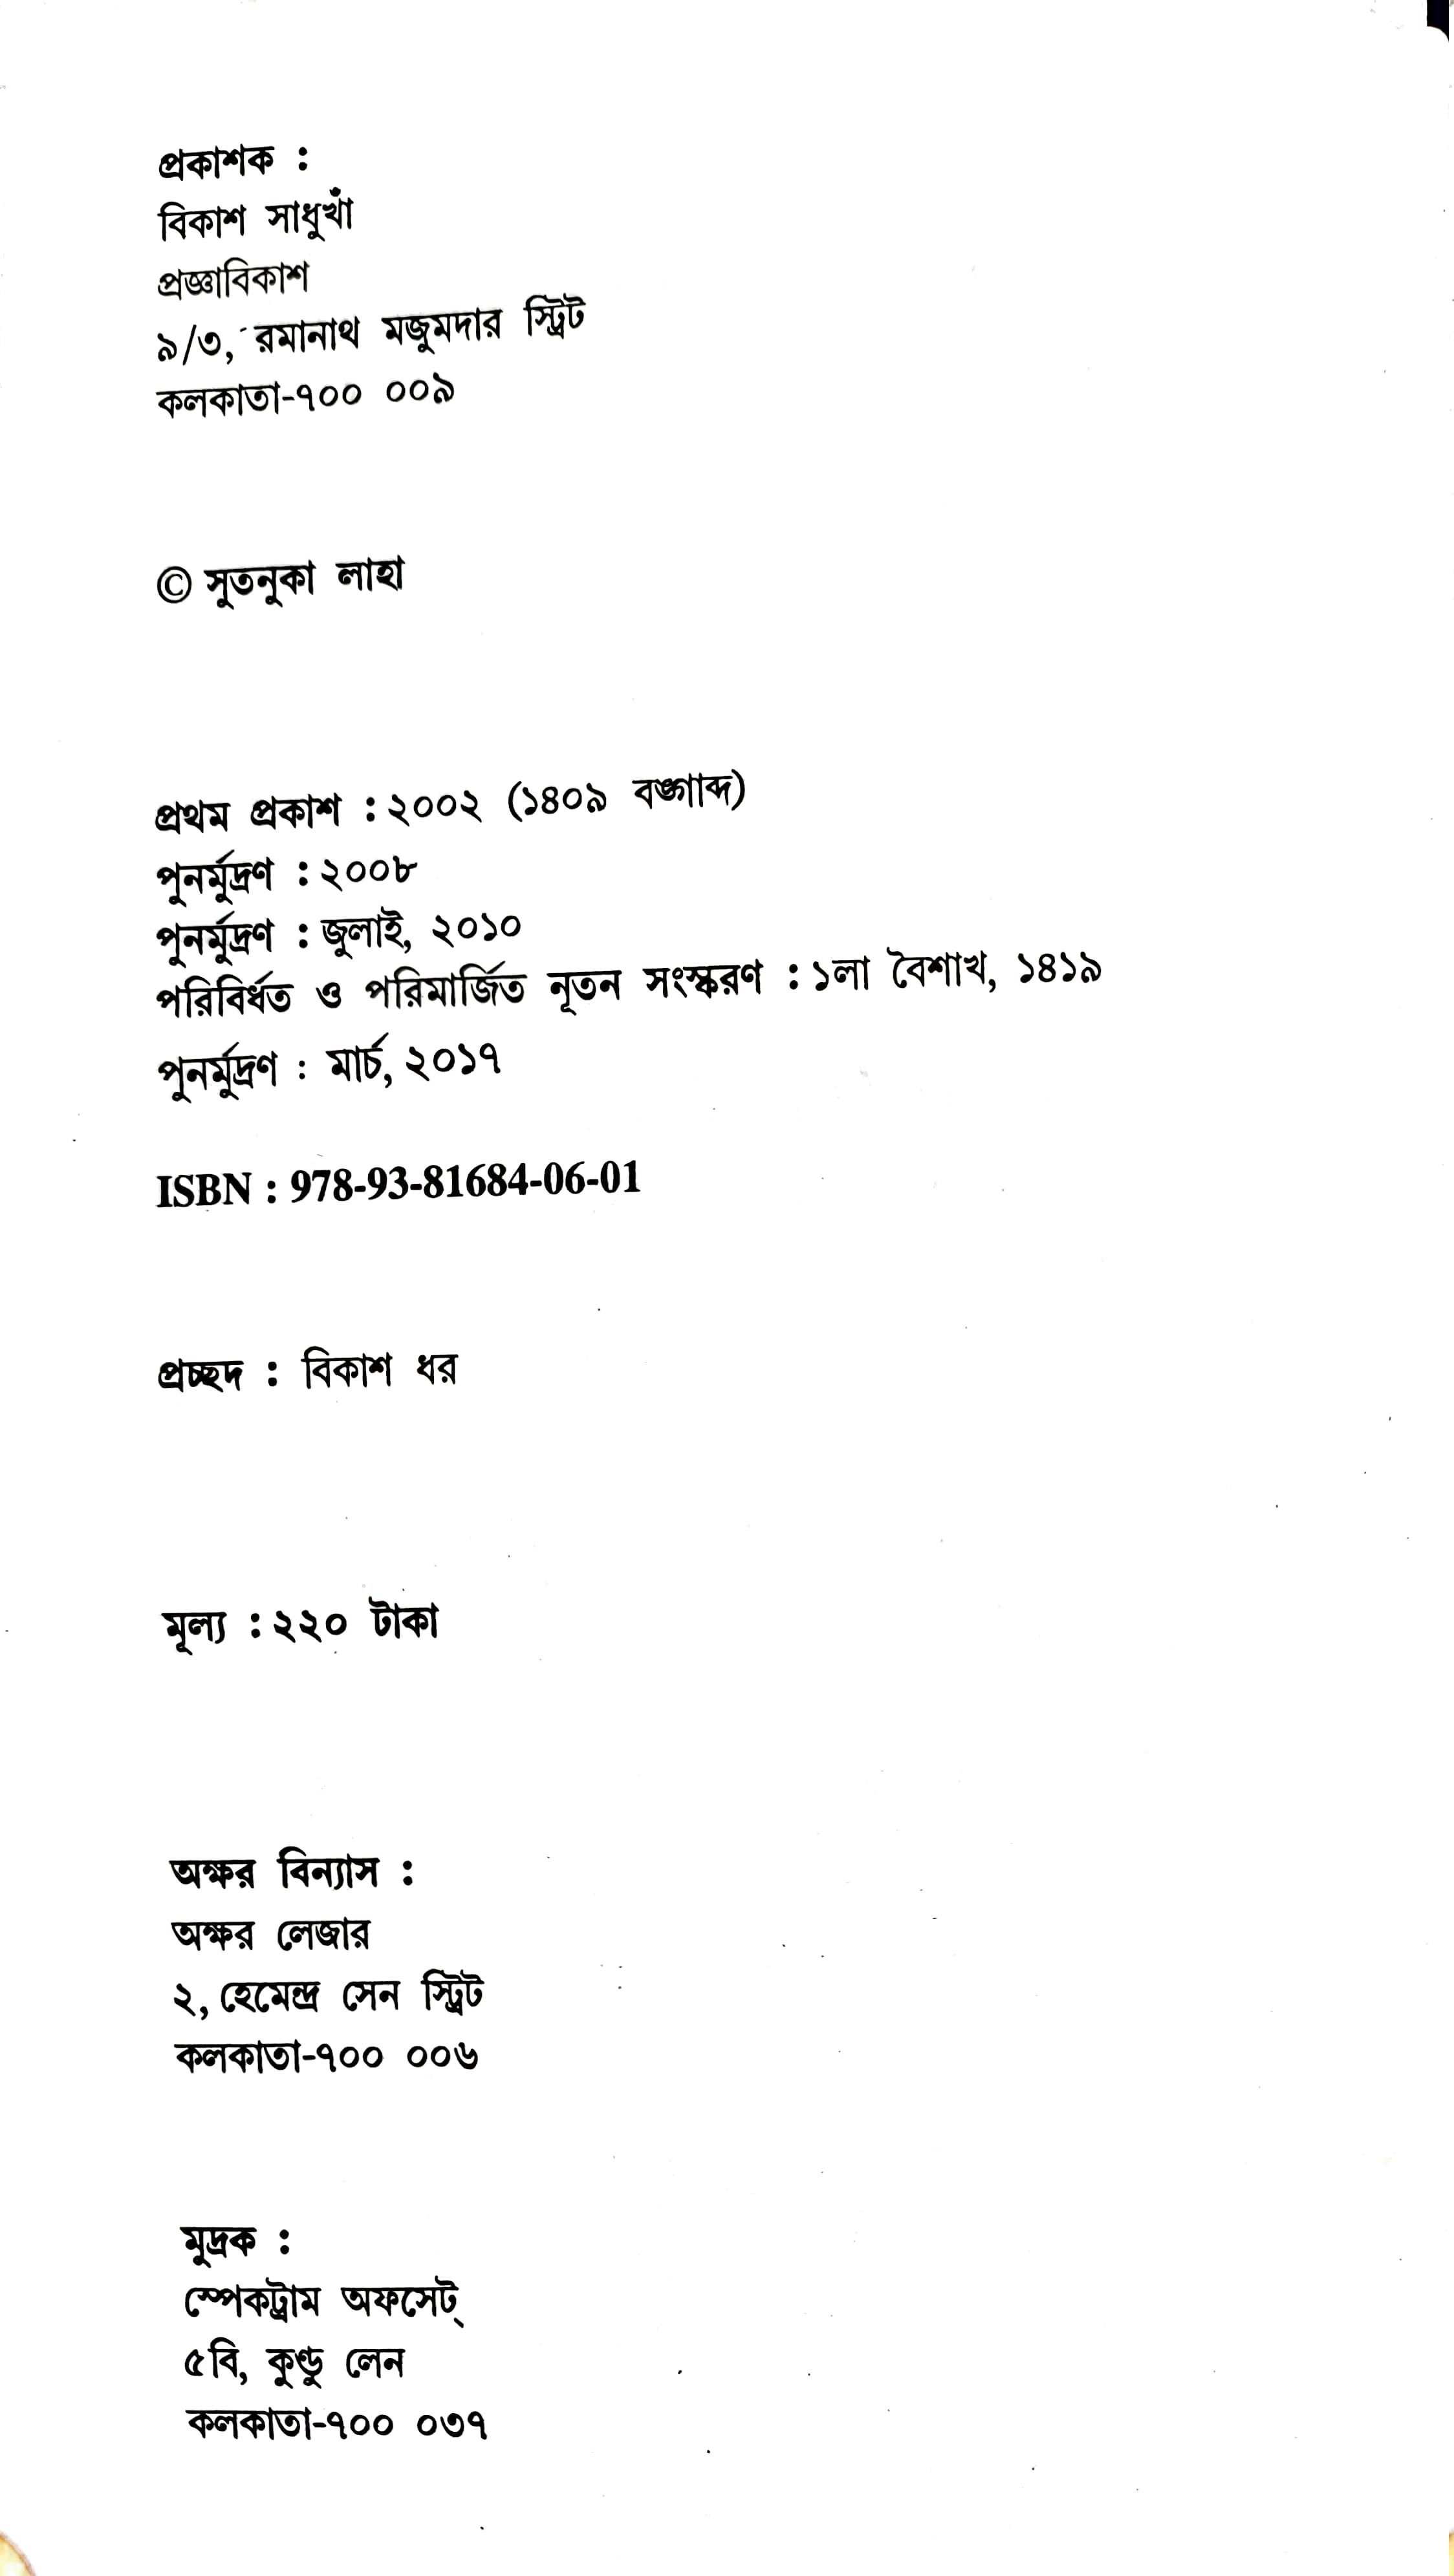 প্রকাশক :
বিকাশ সাধুখাঁ
প্রজ্ঞাবিকাশ
৯/৩, রমানাথ মজুমদার স্ট্রিট
কলকাতা-৭০০ ০০৯
© সুতনুকা লাহা
প্রথম প্রকাশ : ২০০২ (১৪০৯ বঙ্গাব্দ)
পুনর্মুদ্রণ : ২০০৮
পুনর্মুদ্রণ : জুলাই, ২০১০
পরিবির্ধত ও পরিমার্জিত নূতন সংস্করণ : ১লা বৈশাখ, ১৪১৯
পুনর্মুদ্রণ : মার্চ, ২০১৭
ISBN : 978-93-81684-06-01
প্রচ্ছদ : বিকাশ ধর
মূল্য : ২২০ টাকা
অক্ষর বিন্যাস :
অক্ষর লেজার
২, হেমেন্দ্র সেন স্ট্রিট
কলকাতা-৭০০ ০০৬
মুদ্রক :
স্পেকট্রাম অফসেট্
৫বি, কুণ্ডু লেন
কলকাতা-৭০০ ০৩৭